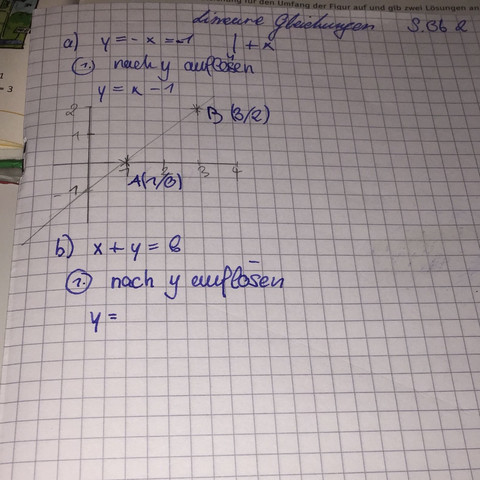 für den Umfang der Figur auf und gib zwei Lösungen an
Lineare Gleichungen S.36 2
a) y = - x = -1 | + x
1. nach y auflösen
y = x - 1
2
B (3/2)
1
1 2 3 4
A(1/0)
-1
b) x + y = 6
1. nach y auflösen
y =
= 3